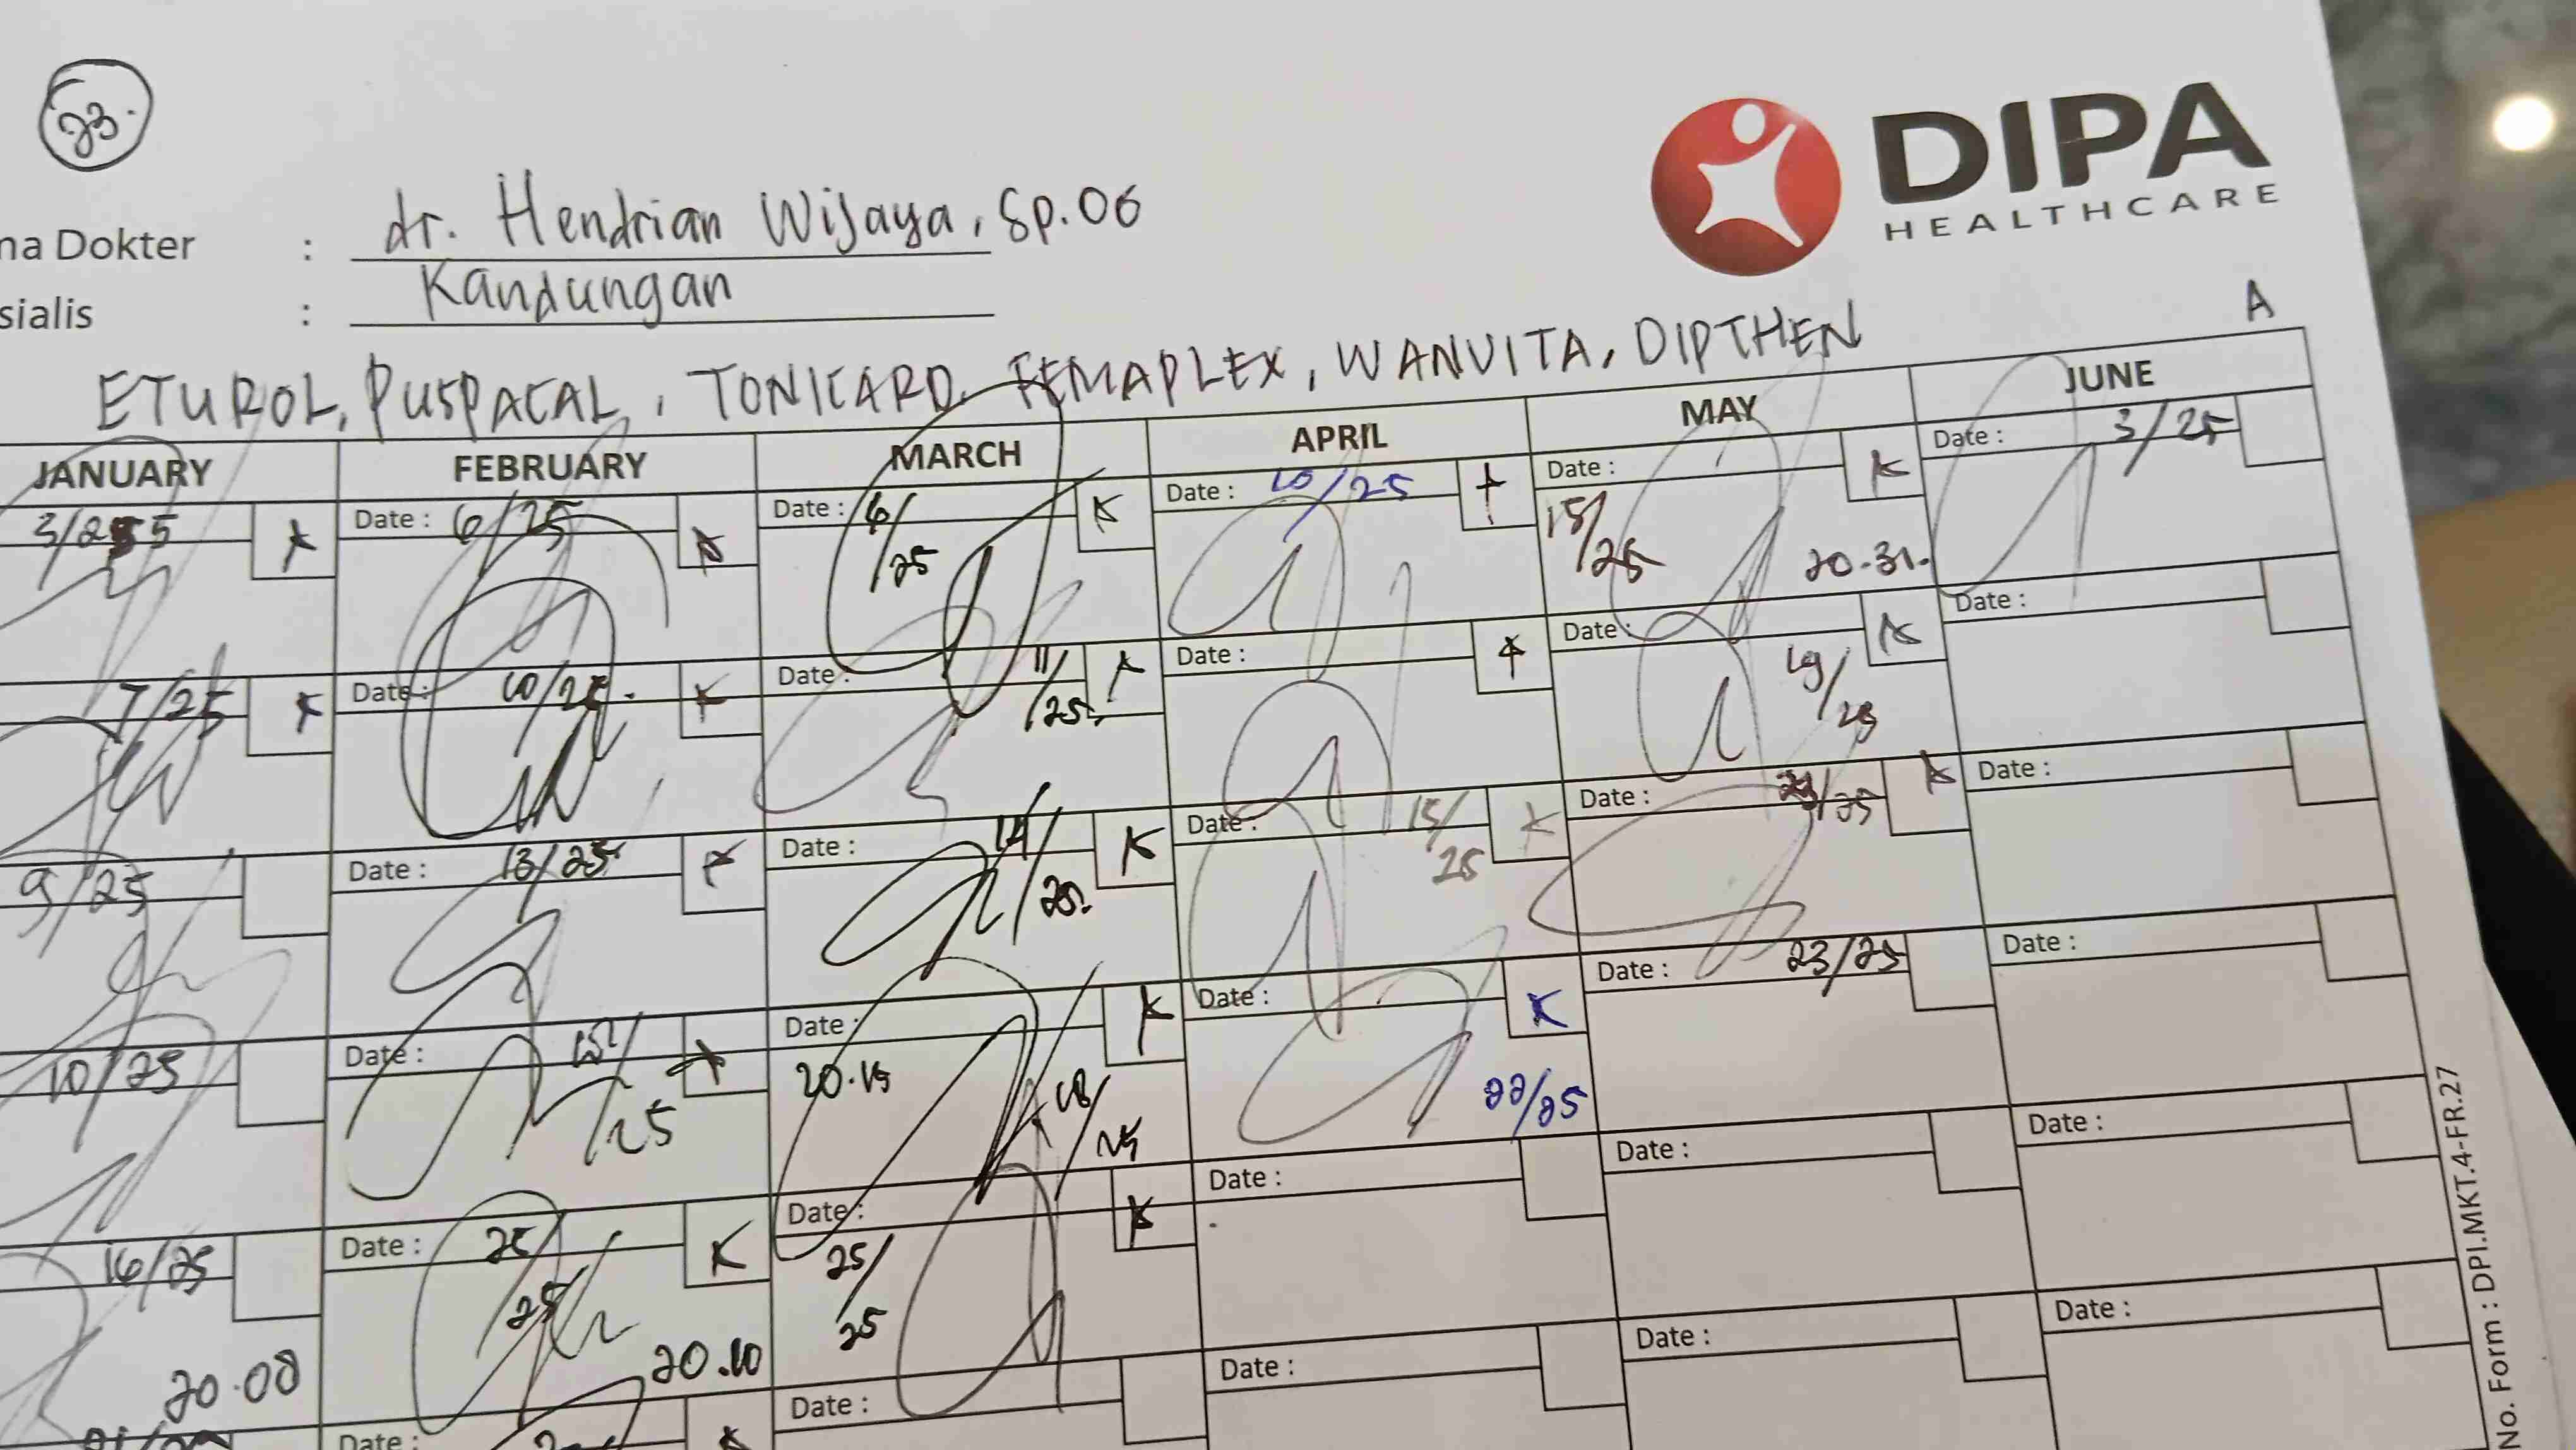 23.
DIPA
HEALTHCARE
na Dokter : dr. Hendrian Wijaya, Sp.OG
sialis : Kandungan
A
ETUROL, PUSPACAL, TONICARD, FEMAPLEX, WANVITA, DIPTHEN
JANUARY FEBRUARY MARCH APRIL MAY JUNE
3/25 Date : 6/25 Date : 6/25 Date : 10/25 Date : 15/25 20.31. Date : 3/25
7/25 Date : 10/25. Date : 11/25. Date : Date : 19/25 Date :
9/25 Date : 13/25 Date : 14/25. Date : 15/25 Date : /25 Date :
10/25 Date : /25 Date : 20.15 18/25 Date : 22/25 Date : 23/25 Date :
16/25 20.08 Date : 25/25 20.10 Date : 25/25 Date : Date : Date :
Date : Date : Date : Date : Date :
No. Form : DPI.MKT.4-FR.27